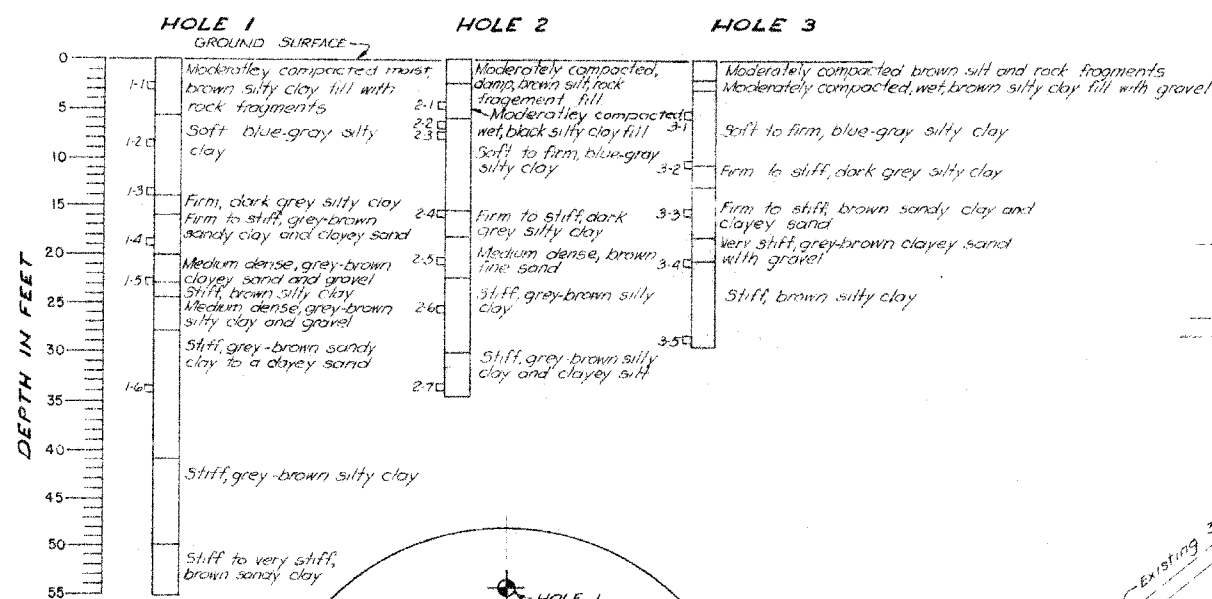 HOLE 1
HOLE 2
HOLE 3
GROUND SURFACE
DEPTH IN FEET
0
5
10
15
20
25
30
35
40
45
50
55
1-1
1-2
1-3
1-4
1-5
1-6
Moderatley compacted moist,
brown silty clay fill with
rock fragments
Soft blue-gray silty
clay
Firm, dark grey silty clay
Firm to stiff, grey-brown
sandy clay and clayey sand
Medium dense, grey-brown
clayey sand and gravel
Stiff, brown silty clay
Medium dense, grey-brown
silty clay and gravel
Stiff, grey-brown sandy
clay to a clayey sand
Stiff, grey-brown silty clay
Stiff to very stiff,
brown sandy clay
2-1
2-2
2-3
2-4
2-5
2-6
2-7
Moderately compacted,
damp, brown silt, rock
fragement fill
Moderatley compacted,
wet, black silty clay fill
Soft to firm, blue-gray
silty clay
Firm to stiff, dark
grey silty clay
Medium dense, brown
fine sand
Stiff, grey-brown silty
clay
Stiff, grey-brown silty
clay and clayey silt
3-1
3-2
3-3
3-4
3-5
Moderately compacted brown silt and rock fragments
Moderately compacted, wet, brown silty clay fill with gravel
Soft to firm, blue-gray silty clay
Firm to stiff, dark grey silty clay
Firm to stiff, brown sandy clay and
clayey sand
Very stiff, grey-brown clayey sand
with gravel
Stiff, brown silty clay
HOLE 1
Existing 3